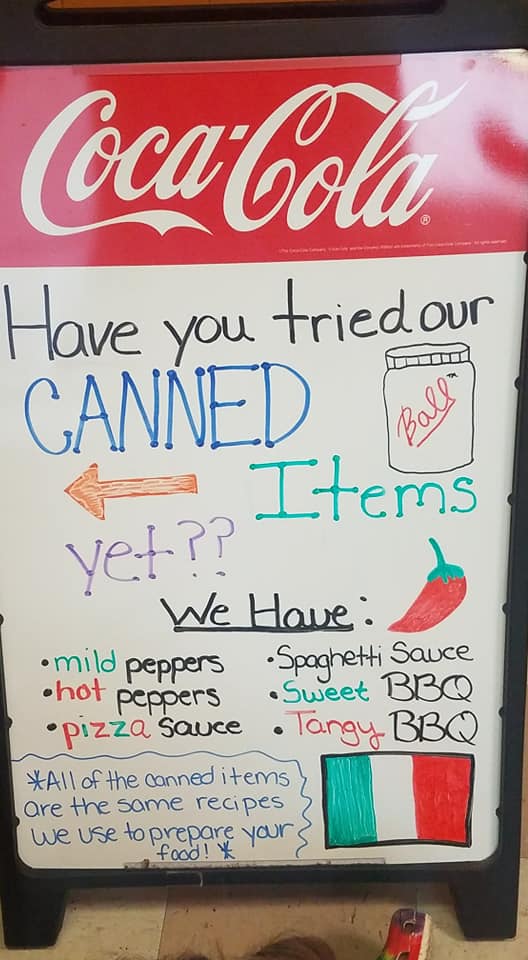 Coca-Cola®
Have you tried our
CANNED
Ball™
Items
yet??
We Have:
•mild peppers
•hot peppers
•pizza Sauce
•Spaghetti Sauce
•Sweet BBQ
•Tangy BBQ
*All of the canned items
are the same recipes
we use to prepare your
food! *